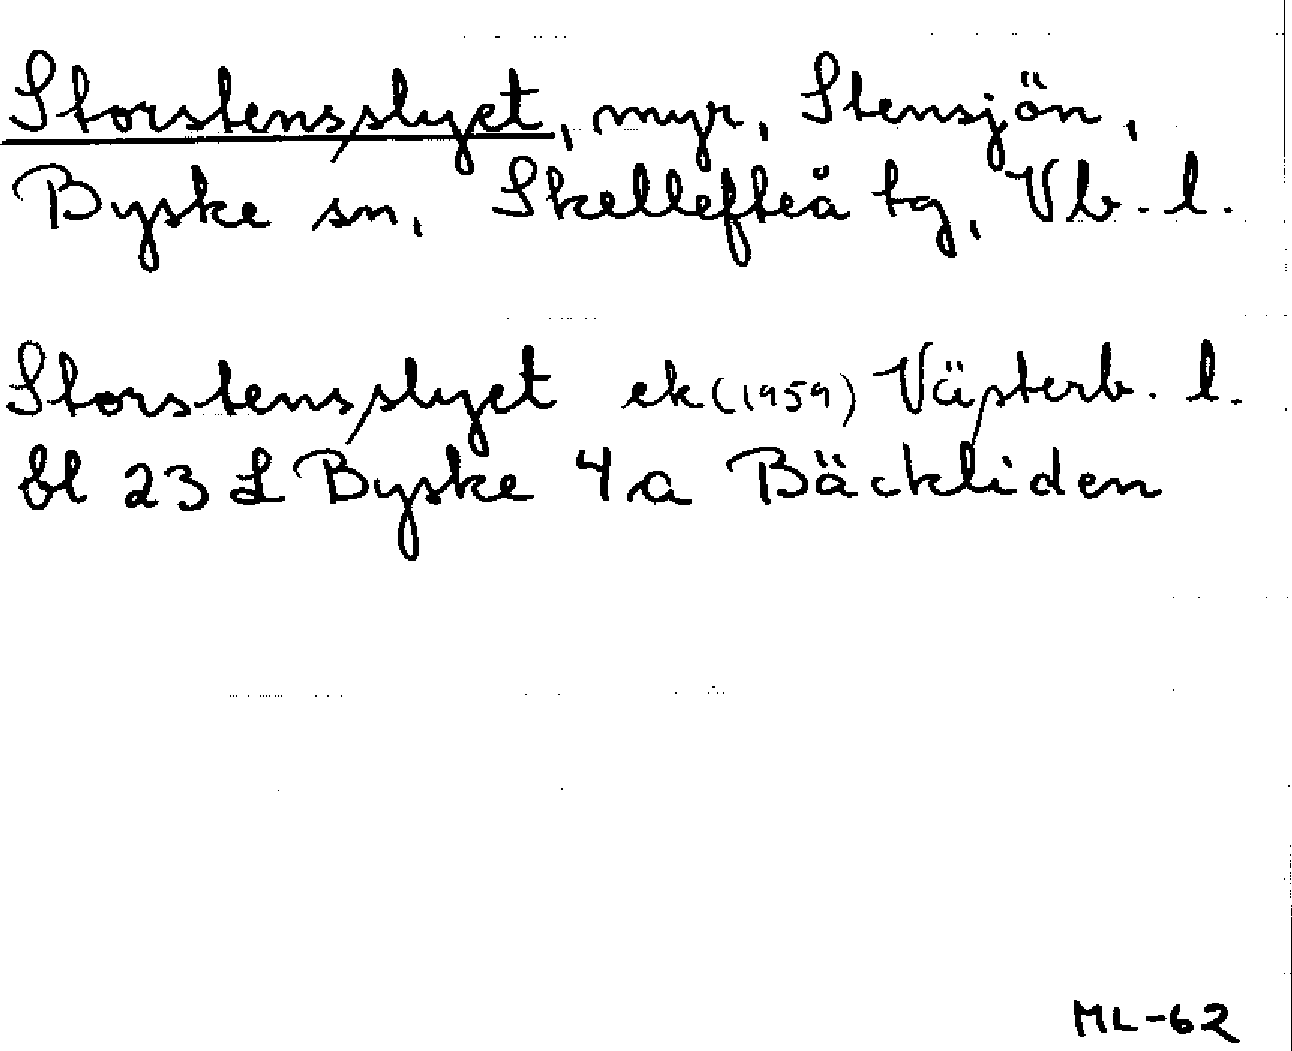 Storstensslyet, myr, Stensjön,
Byske sn, Skellefteå tg, Vb. l.
Storstensslyet ek (1959) Västerb. l.
bl 23 L Byske 4 a Bäckliden
ML-62